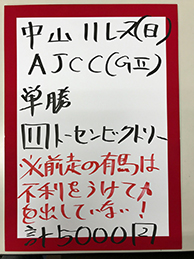 中山11レース(日)
AJCC(GⅡ)
単勝
11トーセンビクトリー
※前走の有馬は
不利をうけて力
を出していない!
計5000円